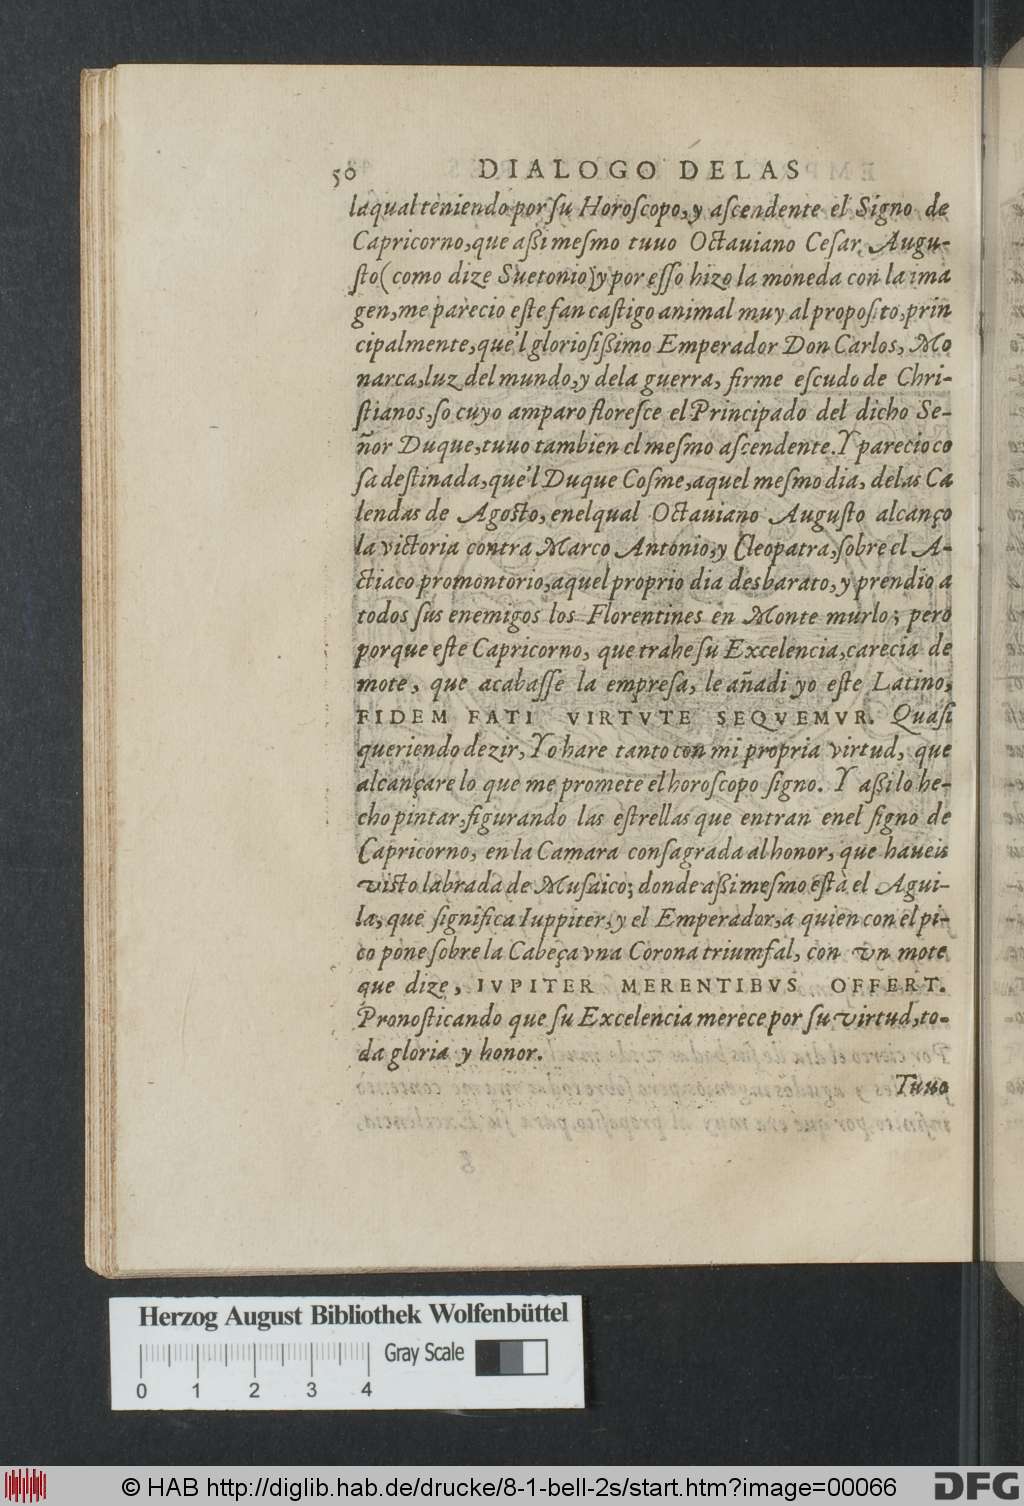 50 DIALOGO DELAS
laqual teniendo por ſu Horoſcopo, y aſcendente el Signo de
Capricorno, que aßi meſmo tuuo Octauiano Ceſar Augu-
ſto (como dize Suetonio) y por eſſo hizo la moneda con la ima
gen, me parecio eſte fan caſtigo animal muy al propoſito, prin
cipalmente, que'l glorioſißimo Emperador Don Carlos, Mo
narca, luz del mundo, y dela guerra, firme eſcudo de Chri-
ſtianos, ſo cuyo amparo floreſce el Principado del dicho Se-
ñor Duque, tuuo tambien el meſmo aſcendente. Y parecio co
ſa deſtinada, que'l Duque Coſme, aquel meſmo dia, delas Ca
lendas de Agoſto, enelqual Octauiano Auguſto alcanço
la victoria contra Marco Antonio, y Cleopatra, ſobre el A-
ctiaco promontorio, aquel proprio dia desbarato, y prendio a
todos ſus enemigos los Florentines en Monte murlo; pero
porque eſte Capricorno, que trahe ſu Excelencia, carecia de
mote, que acabaſſe la empreſa, le añadi yo eſte Latino,
FIDEM FATI VIRTVTE SEQVEMVR. Quaſi
queriendo dezir, Yo hare tanto con mi propria virtud, que
alcançare lo que me promete el horoſcopo ſigno. Y aßi lo he-
cho pintar, figurando las eſtrellas que entran enel ſigno de
Capricorno, en la Camara conſagrada al honor, que haueis
viſto labrada de Muſaico; donde aßi meſmo eſtà el Agui-
la, que ſignifica Iuppiter, y el Emperador, a quien con el pi-
co pone ſobre la Cabeça vna Corona triumfal, con vn mote
que dize, IVPITER MERENTIBVS OFFERT.
Pronoſticando que ſu Excelencia merece por ſu virtud, to-
da gloria y honor.
Tuuo
Herzog August Bibliothek Wolfenbüttel
Gray Scale
0 1 2 3 4
© HAB http://diglib.hab.de/drucke/8-1-bell-2s/start.htm?image=00066
DFG